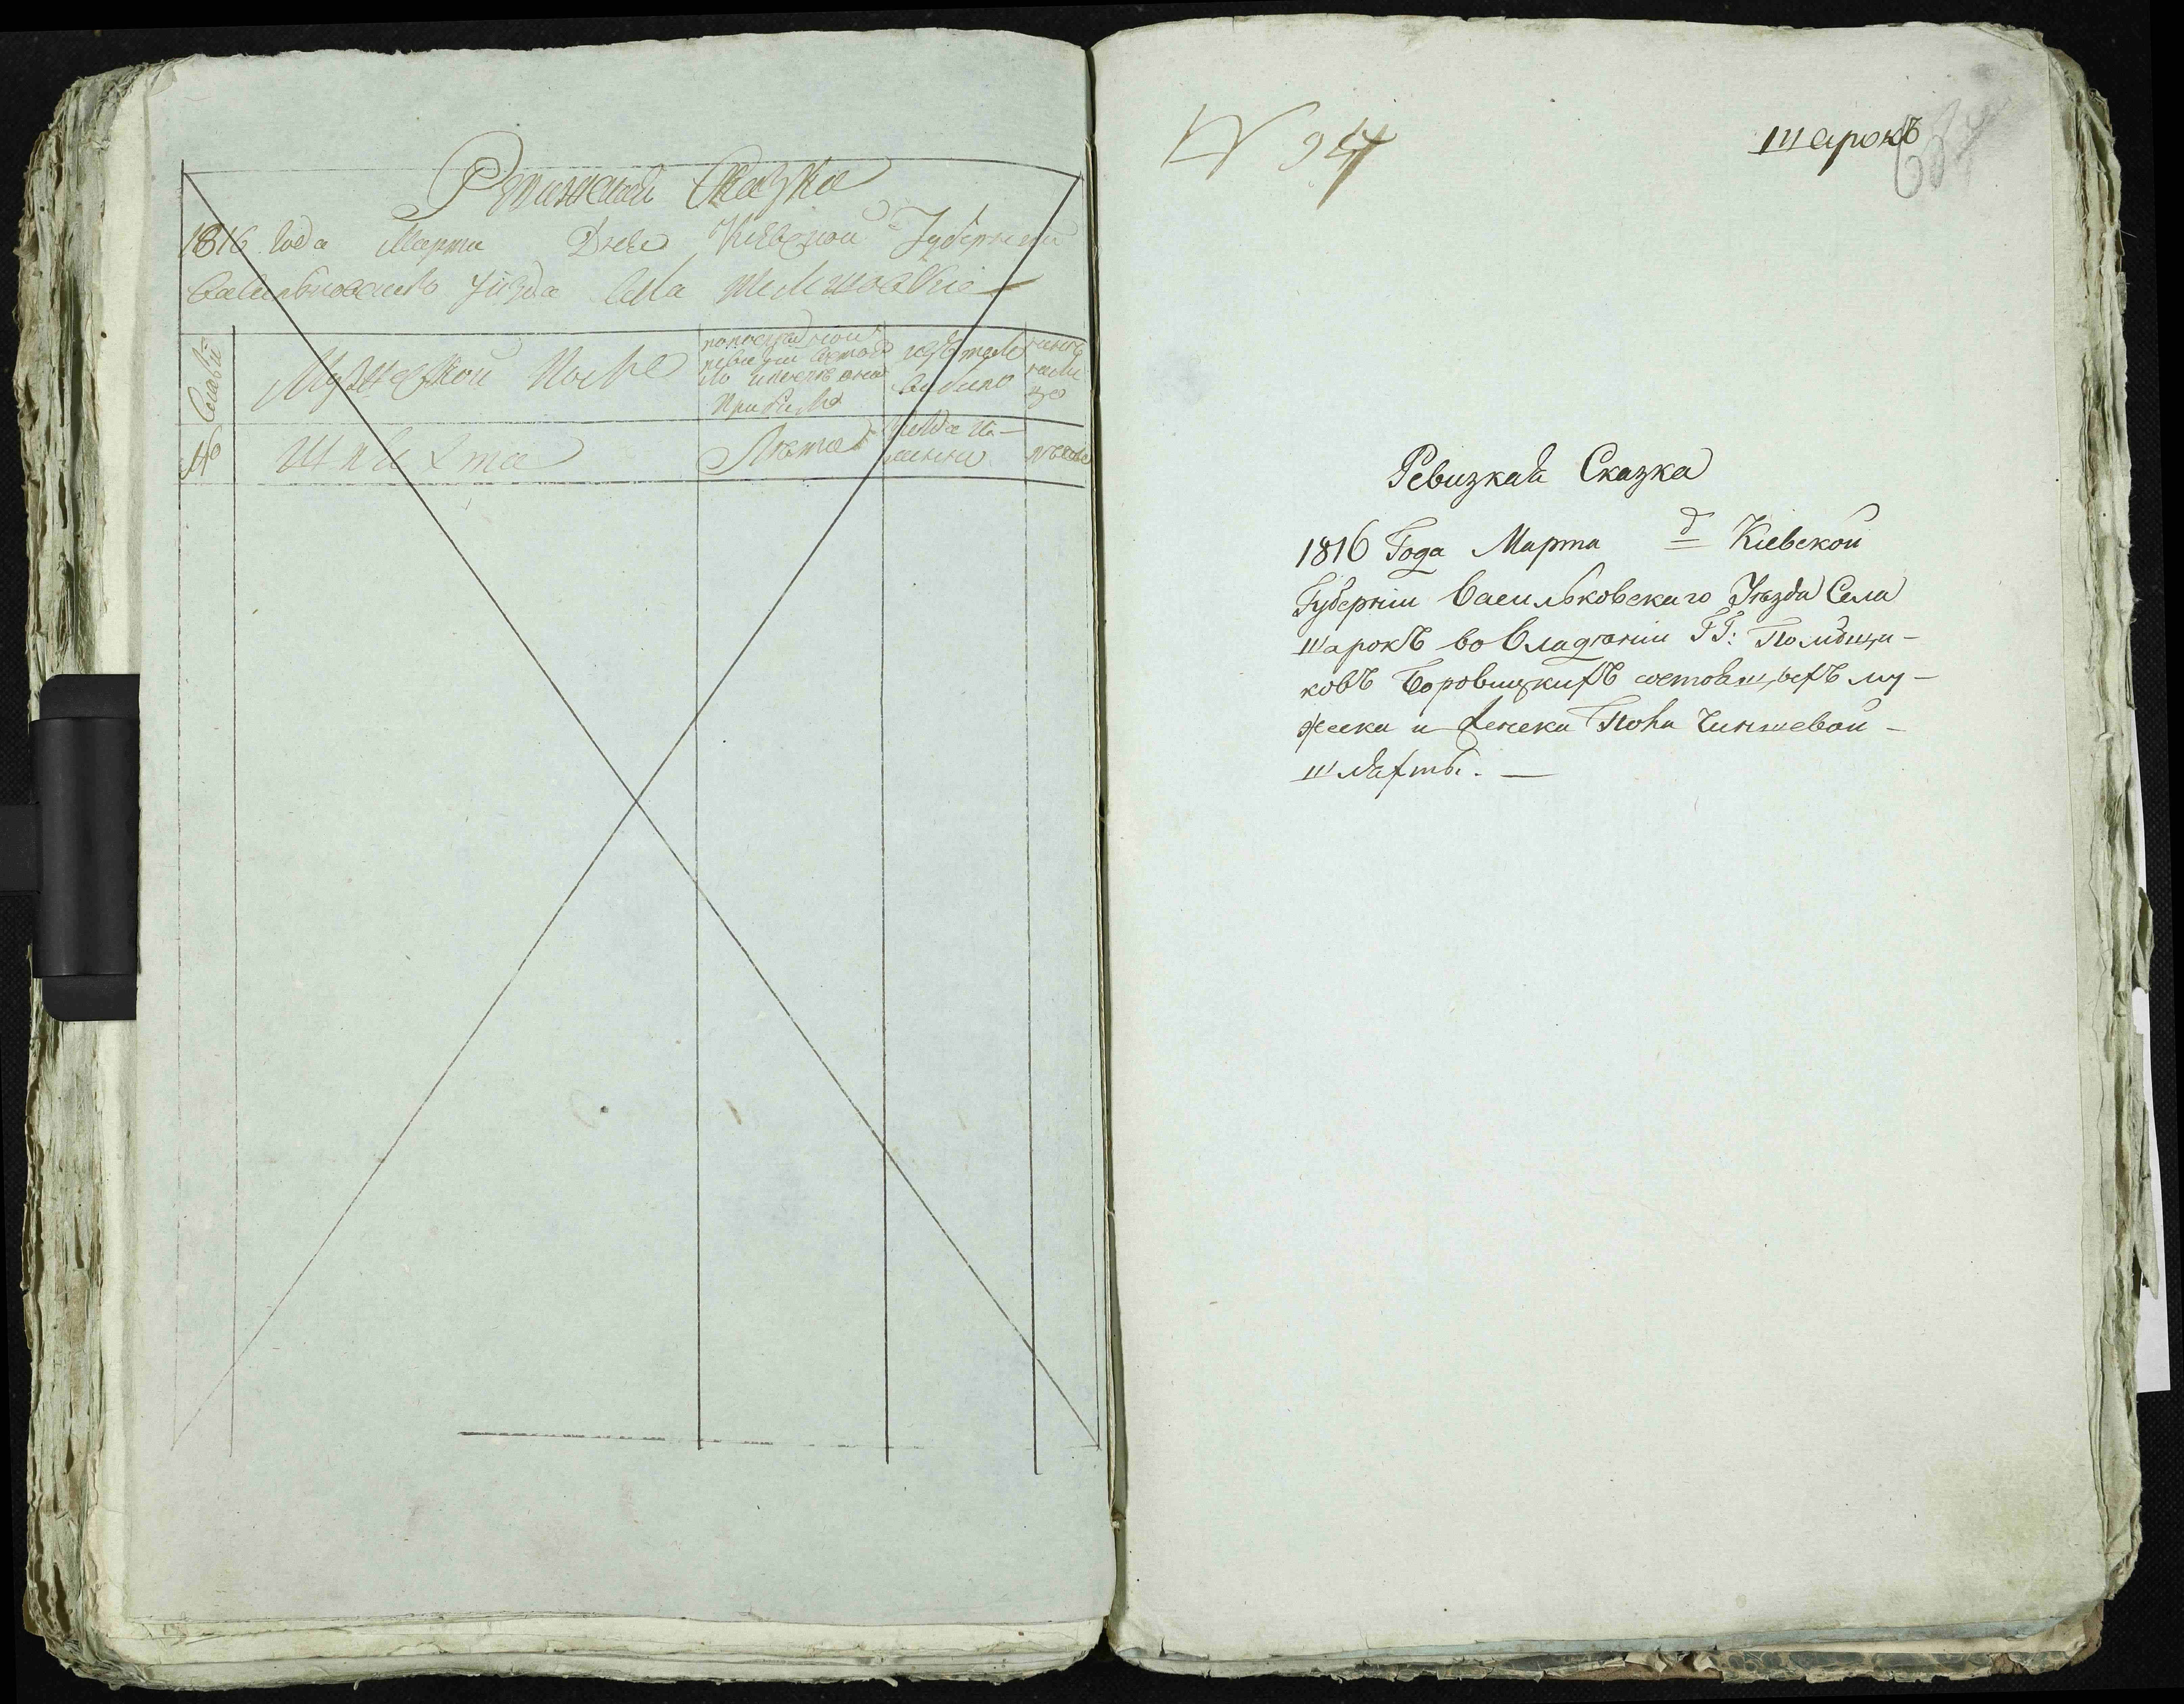 Сказка
1816 года Марта Дня Киевской Губернии
Васильковскаго уезда села
Мужеской полъ
по последней
ревизии состоя
ло и после оной
прибыло
изъ того
выбыло
ныне
на ли
цо
№
Шляхта
Лета
лета
№ 94
Шарокъ
Ревизкая Сказка
1816 Года Марта д Киевской
Губернии Васильковскаго Уезда Села
Шарокъ во Владении ГГ: Помещи-
ковъ Боровицкихъ состоящихъ му-
жеска и женска Пола Чиншевой -
Шляхты. —